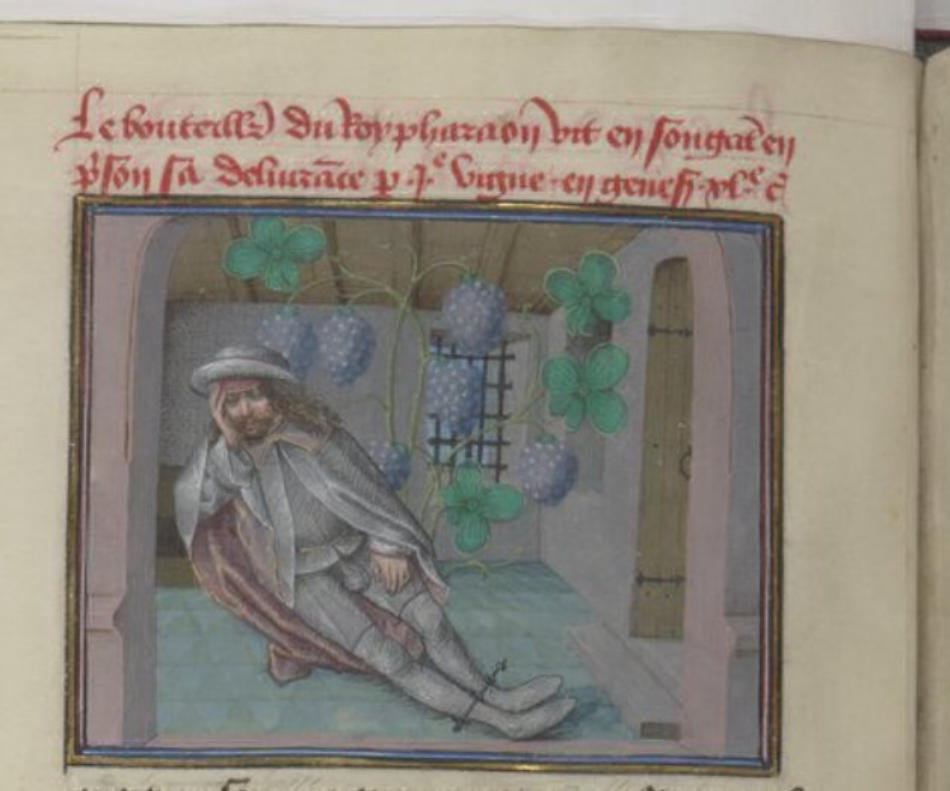 Le bouteill̄r du Roy pharaon vit en songāt en
p̄son sa deliurāce p̲ .j.ᵉ vigne en genes̄ .xl.ᵉ c̄